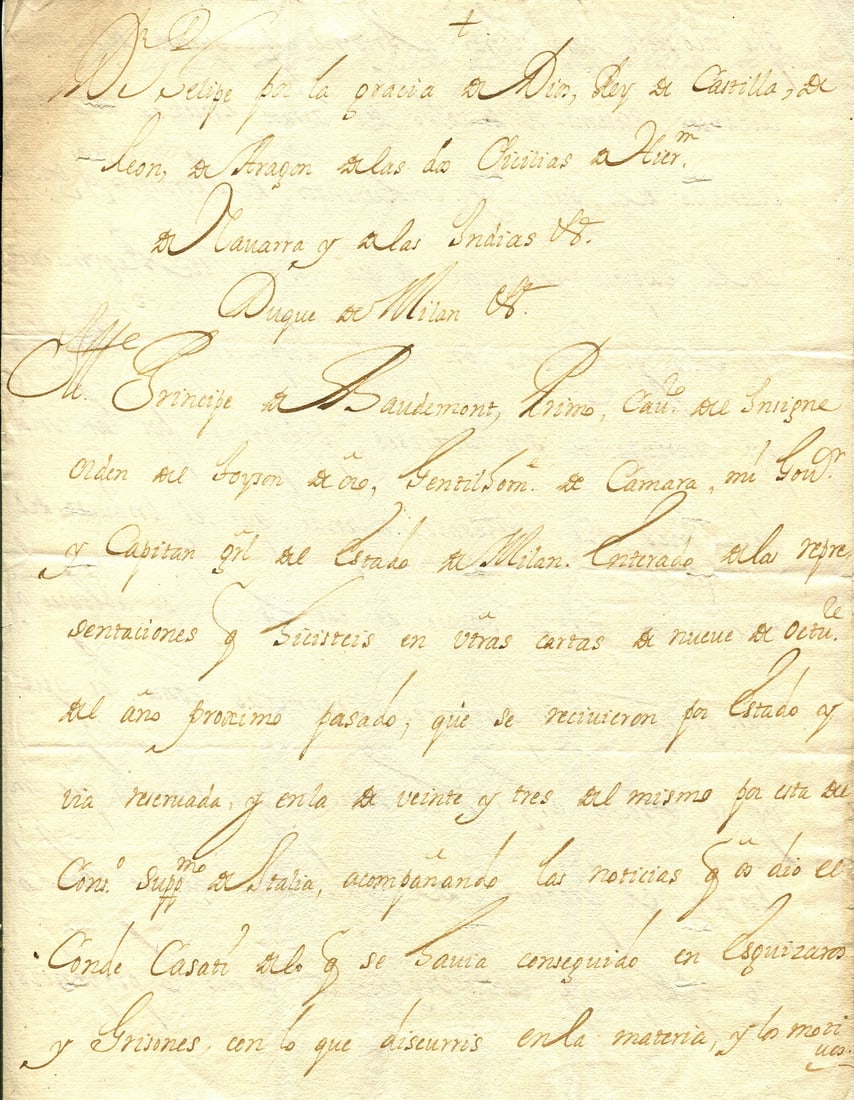 +
Dn Felipe por la gracia de Dios, Rey de Castilla, de
Leon, de Aragon de las dos Cicilias de Hierm.
de Navarra y de las Indias &a.
Duque de Milan &a.
Ille. Principe de Vaudemont, Primo, Cauro. del Insigne
orden del toyson de oro, Gentilhome. de Camara, mi Gouor.
y Capitan grl del Estado de Milan. Enterado de las repre-
sentaciones q hicisteis en vras cartas de nueve de octue.
del año proximo pasado, que se recivieron por Estado y
via reservada, y en la de veinte y tres del mismo por esta del
Conso. Suppmo de Italia, acompañando las noticias q os dio el
Conde Casati de lo q se havia conseguido en Esguizaros
y Grisones, con lo que discurris en la materia, y los moti
uos